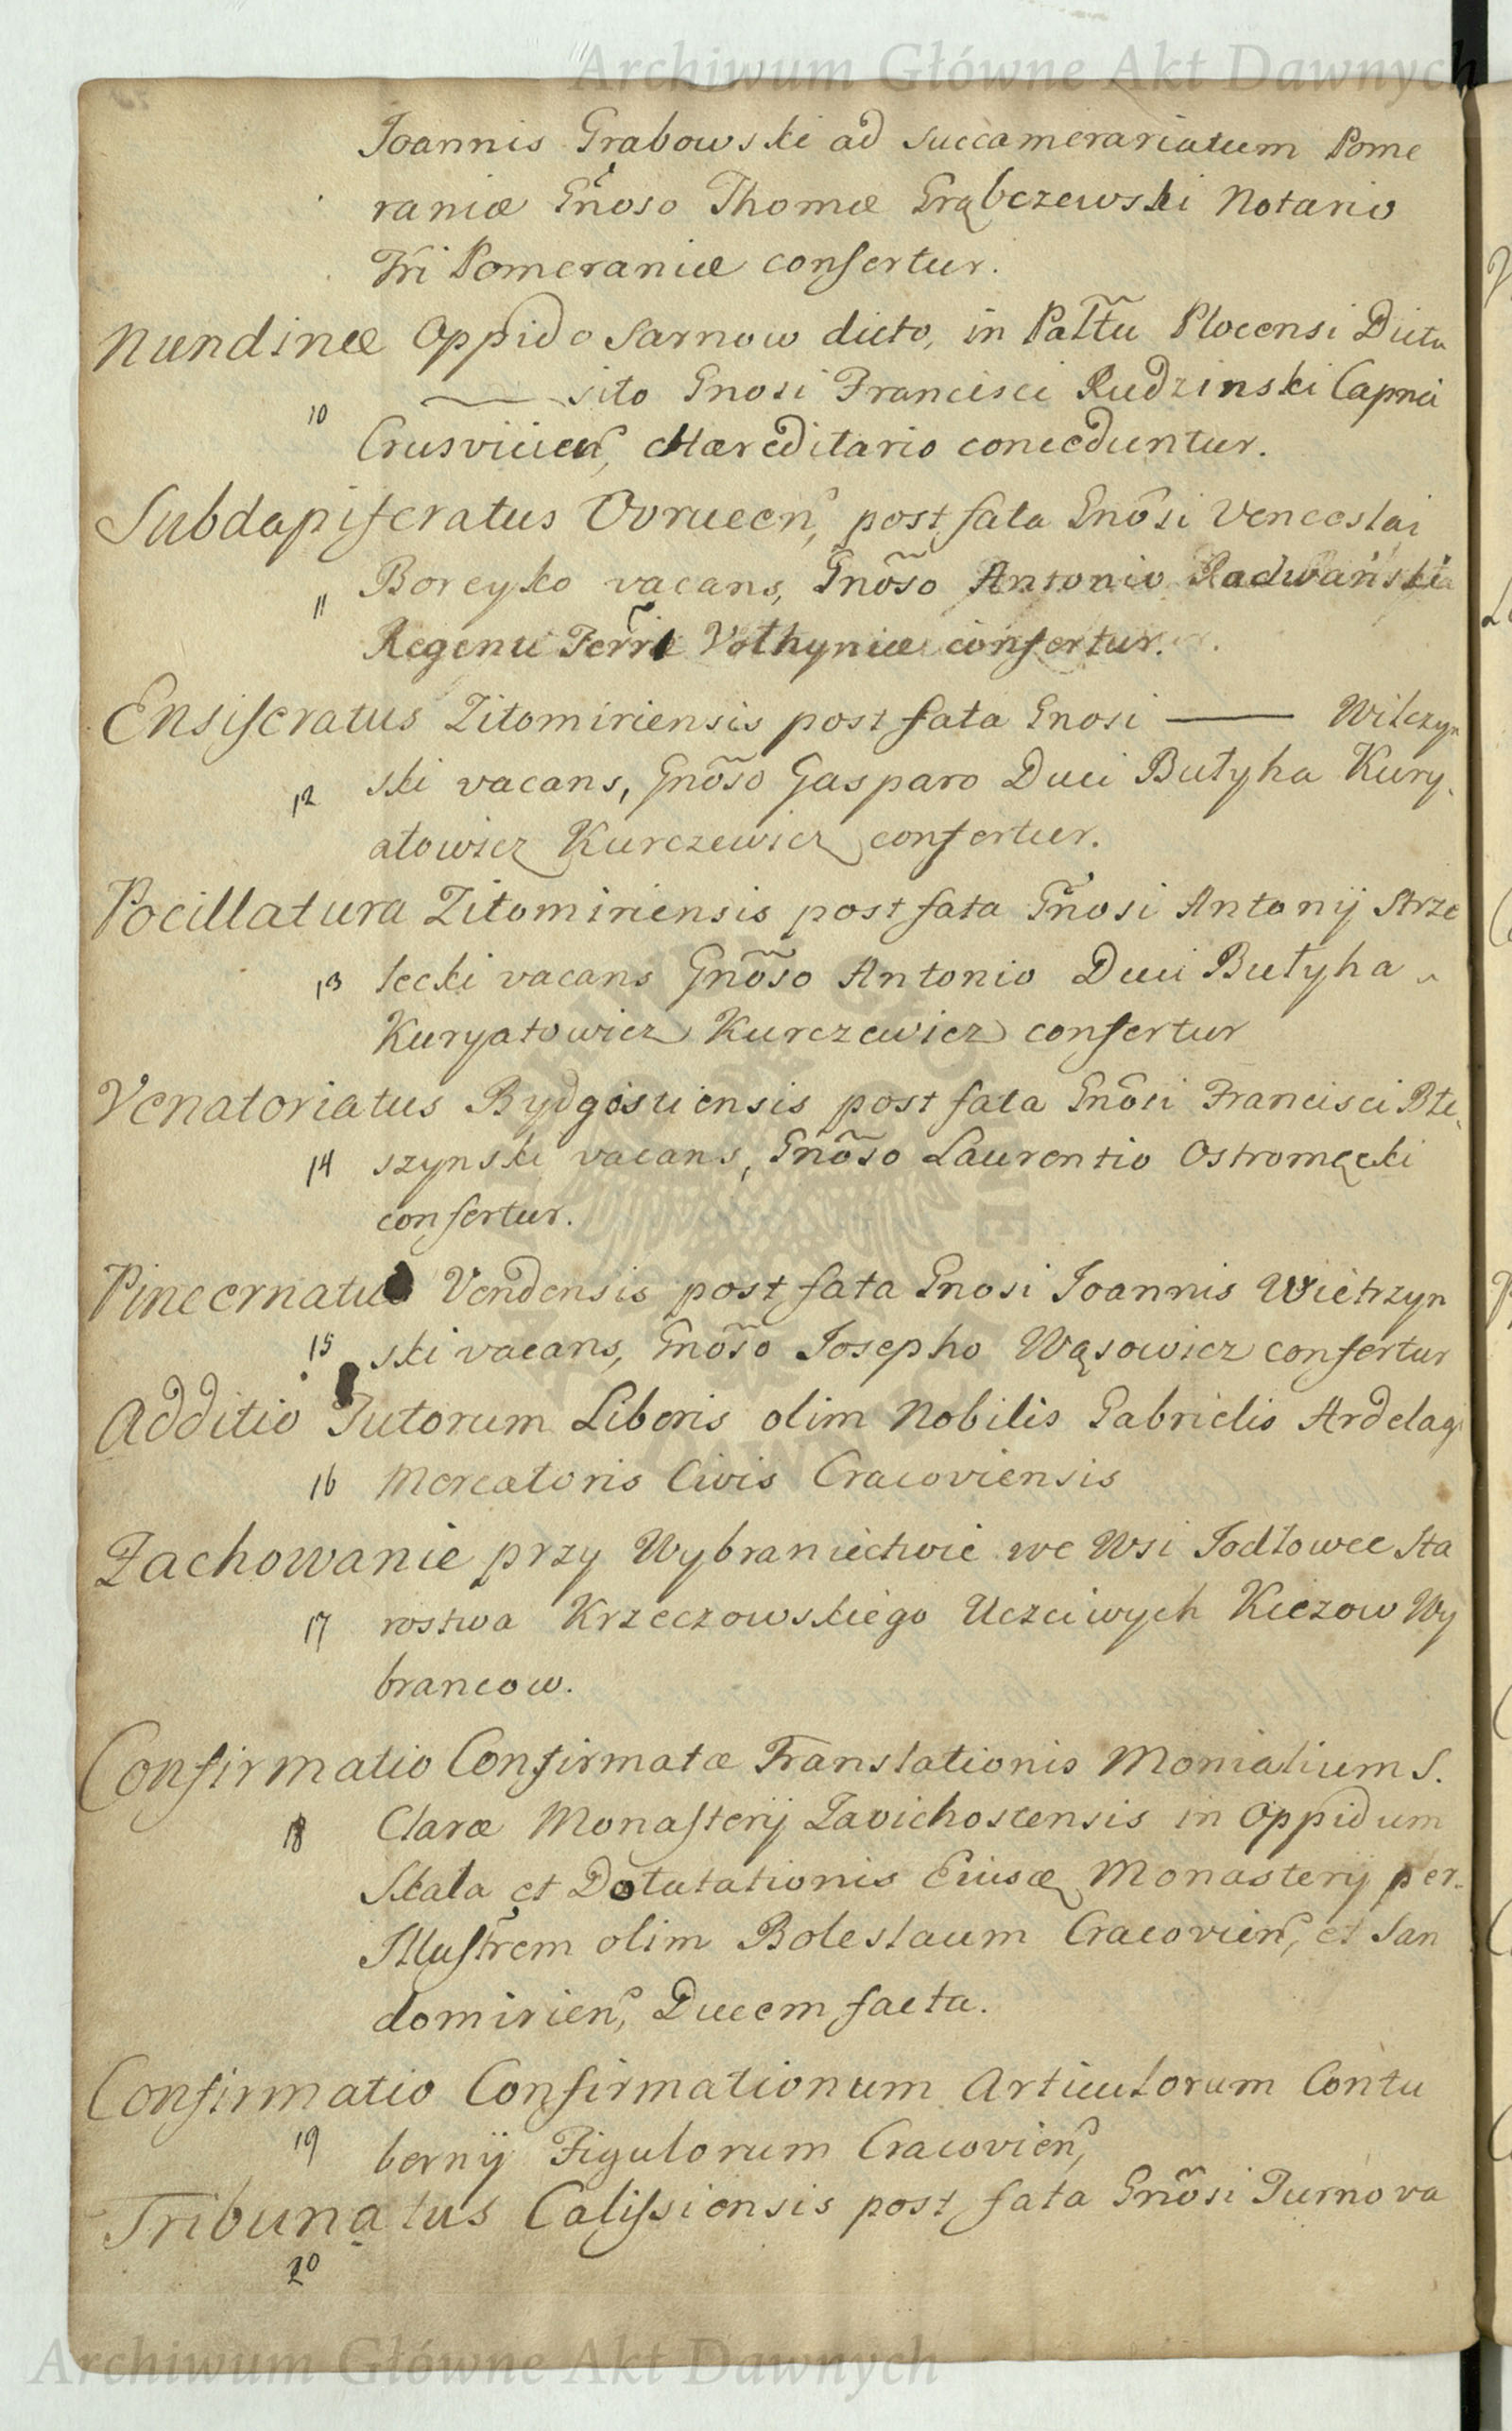 Archiwum Główne Akt Dawnych
Joannis Grabowski ad Succamerariatum Pome
raniæ Gnoso Thomæ Grąbczewski Notario
Tri Pomeraniæ confertur.
Nundinæ Oppido Sarnow dicto, in Palttu Plocensi Dicto
sito Gnosi Francisci Rudzinski Capnei
10
Crusvicien, Hæreditario conceduntur.
Subdapiferatus Ovrucen, post fata Gnosi Venceslai
11 Boreyko vacans, Gnoso Antonio Radwański
Regenti Terrę Volhyniæ confertur.
Ensiferatus Zitomiriensis post fata Gnosi — Wilczyn
12 ski vacans, Gnoso Gasparo Duci Bułyha Kury
atowicz Kurczewicz confertur.
Pocillatura Zitomiriensis post fata Gnosi Antonij Strze
13 lecki vacans Gnoso Antonio Duci Bułyha
Kuryatowicz Kurczewicz confertur
Venatoriatus Bydgostiensis post fata Gnosi Francisci Błe
14 szynski vacans, Gnoso Laurentio Ostromęcki
confertur.
Pincernatus Vendensis post fata Gnosi Joannis Wietrzyn
15 ski vacans, Gnoso Josepho Wąsowicz confertur
Additio Tutorum Liberis olim Nobilis Gabrielis Ardelagi
16 Mercatoris Civis Cracoviensis
Zachowanie przy Wybraniectwie we Wsi Jodłowce Sta
17 rostwa Krzeczowskiego Uczciwych Kiezow Wy
brancow.
Confirmatio Confirmatæ Translationis Monialium S.
18 Claræ Monasterij Zavichostensis in Oppidum
Skala et Dotatationis Eiusdę Monasterij per
Illustrem olim Boleslaum Cracovien, et San
domirien, Ducem facta.
Confirmatio Confirmationum Articulorum Contu
19 bernij Figulorum Cracovien,
Tribunatus Calissiensis post fata Gnosi Turno va
20
Archiwum Główne Akt Dawnych